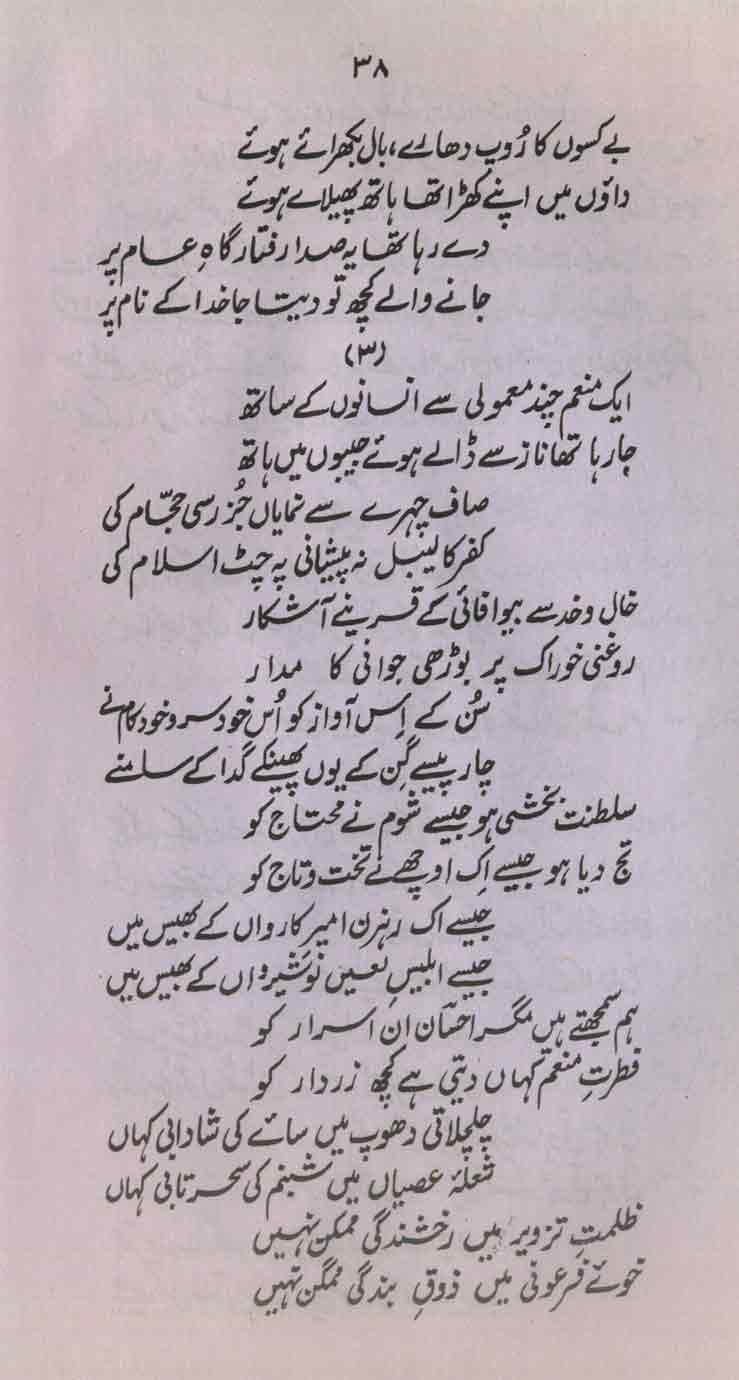 ۳۸
بے کسوں کا رُوپ دھارے، بال بکھرائے ہوئے
داؤں میں اپنے کھڑا تھا ہاتھ پھیلائے ہوئے
دے رہا تھا یہ صدا رفتار گاہِ عام پر
جانے والے کچھ تو دیتا جا خدا کے نام پر
(۳)
ایک منعم چند معمولی سے انسانوں کے ساتھ
جا رہا تھا ناز سے ڈالے ہوئے جیبوں میں ہاتھ
صاف چہرے سے نمایاں جُزرسی حجّام کی
کفر کا لیبل نہ پیشانی پہ چٹ اسلام کی
خال و خد سے بیوافائی کے قرینے آشکار
روغنی خوراک پر بوڑھی جوانی کا مدار
سُن کے اِس آواز کو اُس خود سر و خود کام نے
چار پیسے گِن کے یوں پھینکے گدا کے سامنے
سلطنت بخشی ہو جیسے شوم نے محتاج کو
تج دیا ہو جیسے اِک اوچھے نے تخت و تاج کو
جیسے اک رہزن امیر کارواں کے بھیس میں
جیسے ابلیسِ لعیں نوشیرواں کے بھیس میں
ہم سمجھتے ہیں مگر احسان ان اسرار کو
فطرتِ منعم کہاں دیتی ہے کچھ زردار کو
چلچلاتی دھوپ میں سائے کی شادابی کہاں
شعلۂ عصیاں میں شبنم کی سحر تابی کہاں
ظلمتِ تزویر میں رخشندگی ممکن نہیں
خوئے فرعونی میں ذوقِ بندگی ممکن نہیں